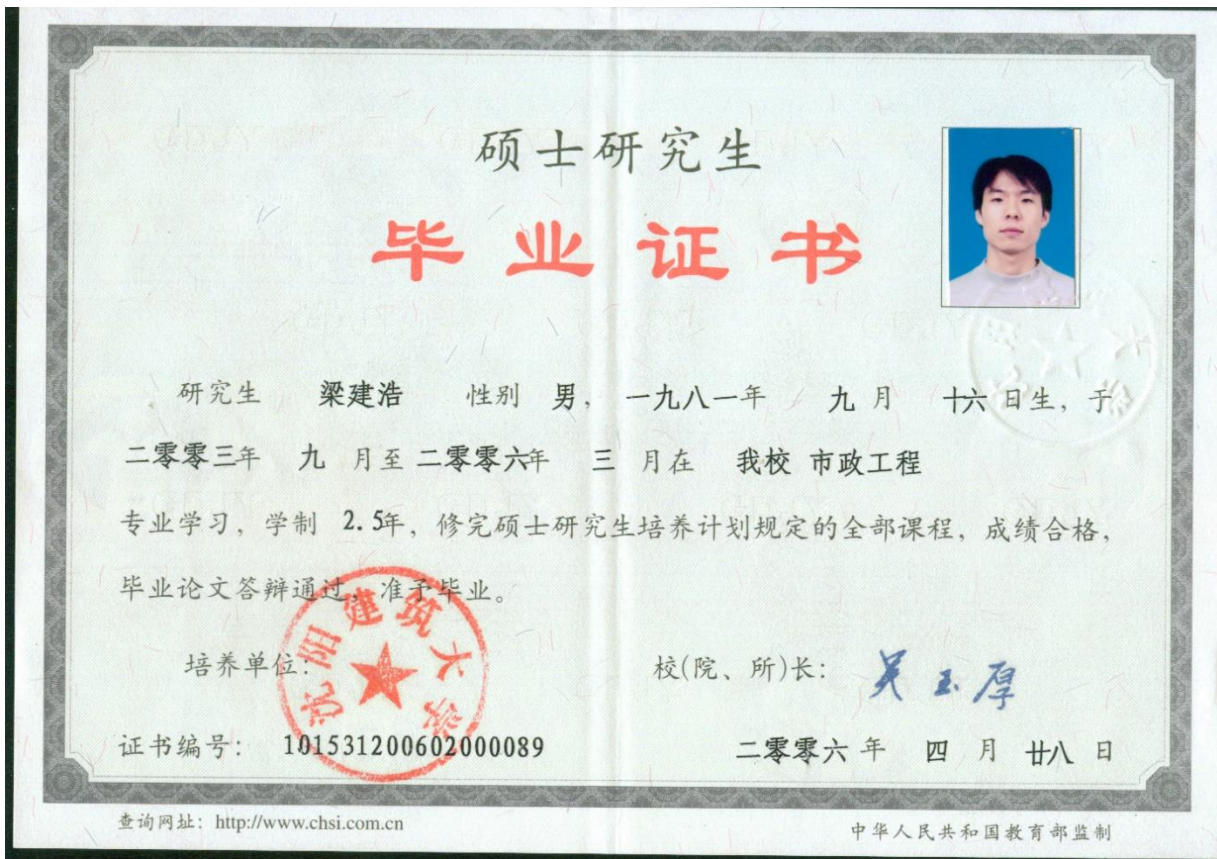 硕士研究生
毕业证书
研究生 梁建浩 性别 男, 一九八一年 九 月 十六 日生, 于
二零零三年 九 月至 二零零六年 三 月在 我校 市政工程
专业学习, 学制 2.5年, 修完硕士研究生培养计划规定的全部课程, 成绩合格,
毕业论文答辩通过, 准予毕业。
沈阳建筑大学
培养单位: 校(院、所)长: 吴玉厚
证书编号: 101531200602000089 二零零六 年 四 月 廿八 日
查询网址: http://www.chsi.com.cn 中华人民共和国教育部监制